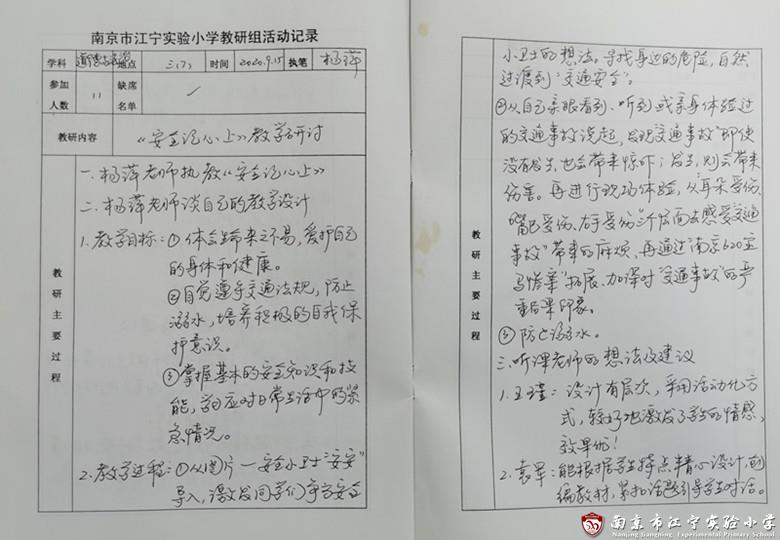 南京市江宁实验小学教研组活动记录
学科 道德与法治 地点 三(7) 时间 2020.9.15 执笔 杨萍
参加人数 11 缺席名单 /
教研内容 《安全记心上》教学研讨
教研主要过程
一.杨萍老师执教《安全记心上》
二.杨萍老师谈自己的教学设计
1.教学目标:①体会生命来之不易,爱护自己
的身体和健康。
②自觉遵守交通法规,防止
溺水,培养积极的自我保
护意识。
③掌握基本的安全知识和技
能,学会应对日常生活中的紧
急情况。
2.教学过程:①从图片—安全小卫士"安安"
导入,激发同学们争当安全
教研主要过程
小卫士的想法。寻找身边的危险,自然
过渡到"交通安全"。
②从自己亲眼看到、听到或亲身体验过
的交通事故说起,发现交通事故"即使
没有发生,也会带来惊吓;发生,则会带来
伤害。再进行现场体验,从"耳朵受伤、
嘴巴受伤、右手受伤"三个层面去感受交通
事故"带来的麻烦。再通过"南京620宝
马惨案"拓展、加深对"交通事故"的严
重后果印象。
③防止溺水。
三.听课老师的想法及建议
1.王瑾:设计有层次,采用活动化方
式,较好地激发了学生的情感,
效果佳!
2.袁军:能根据学生特点精心设计,创
编教材,紧扣话题引导学生对话。
南京市江宁实验小学
Nanjing Jiangning Experimental Primary School